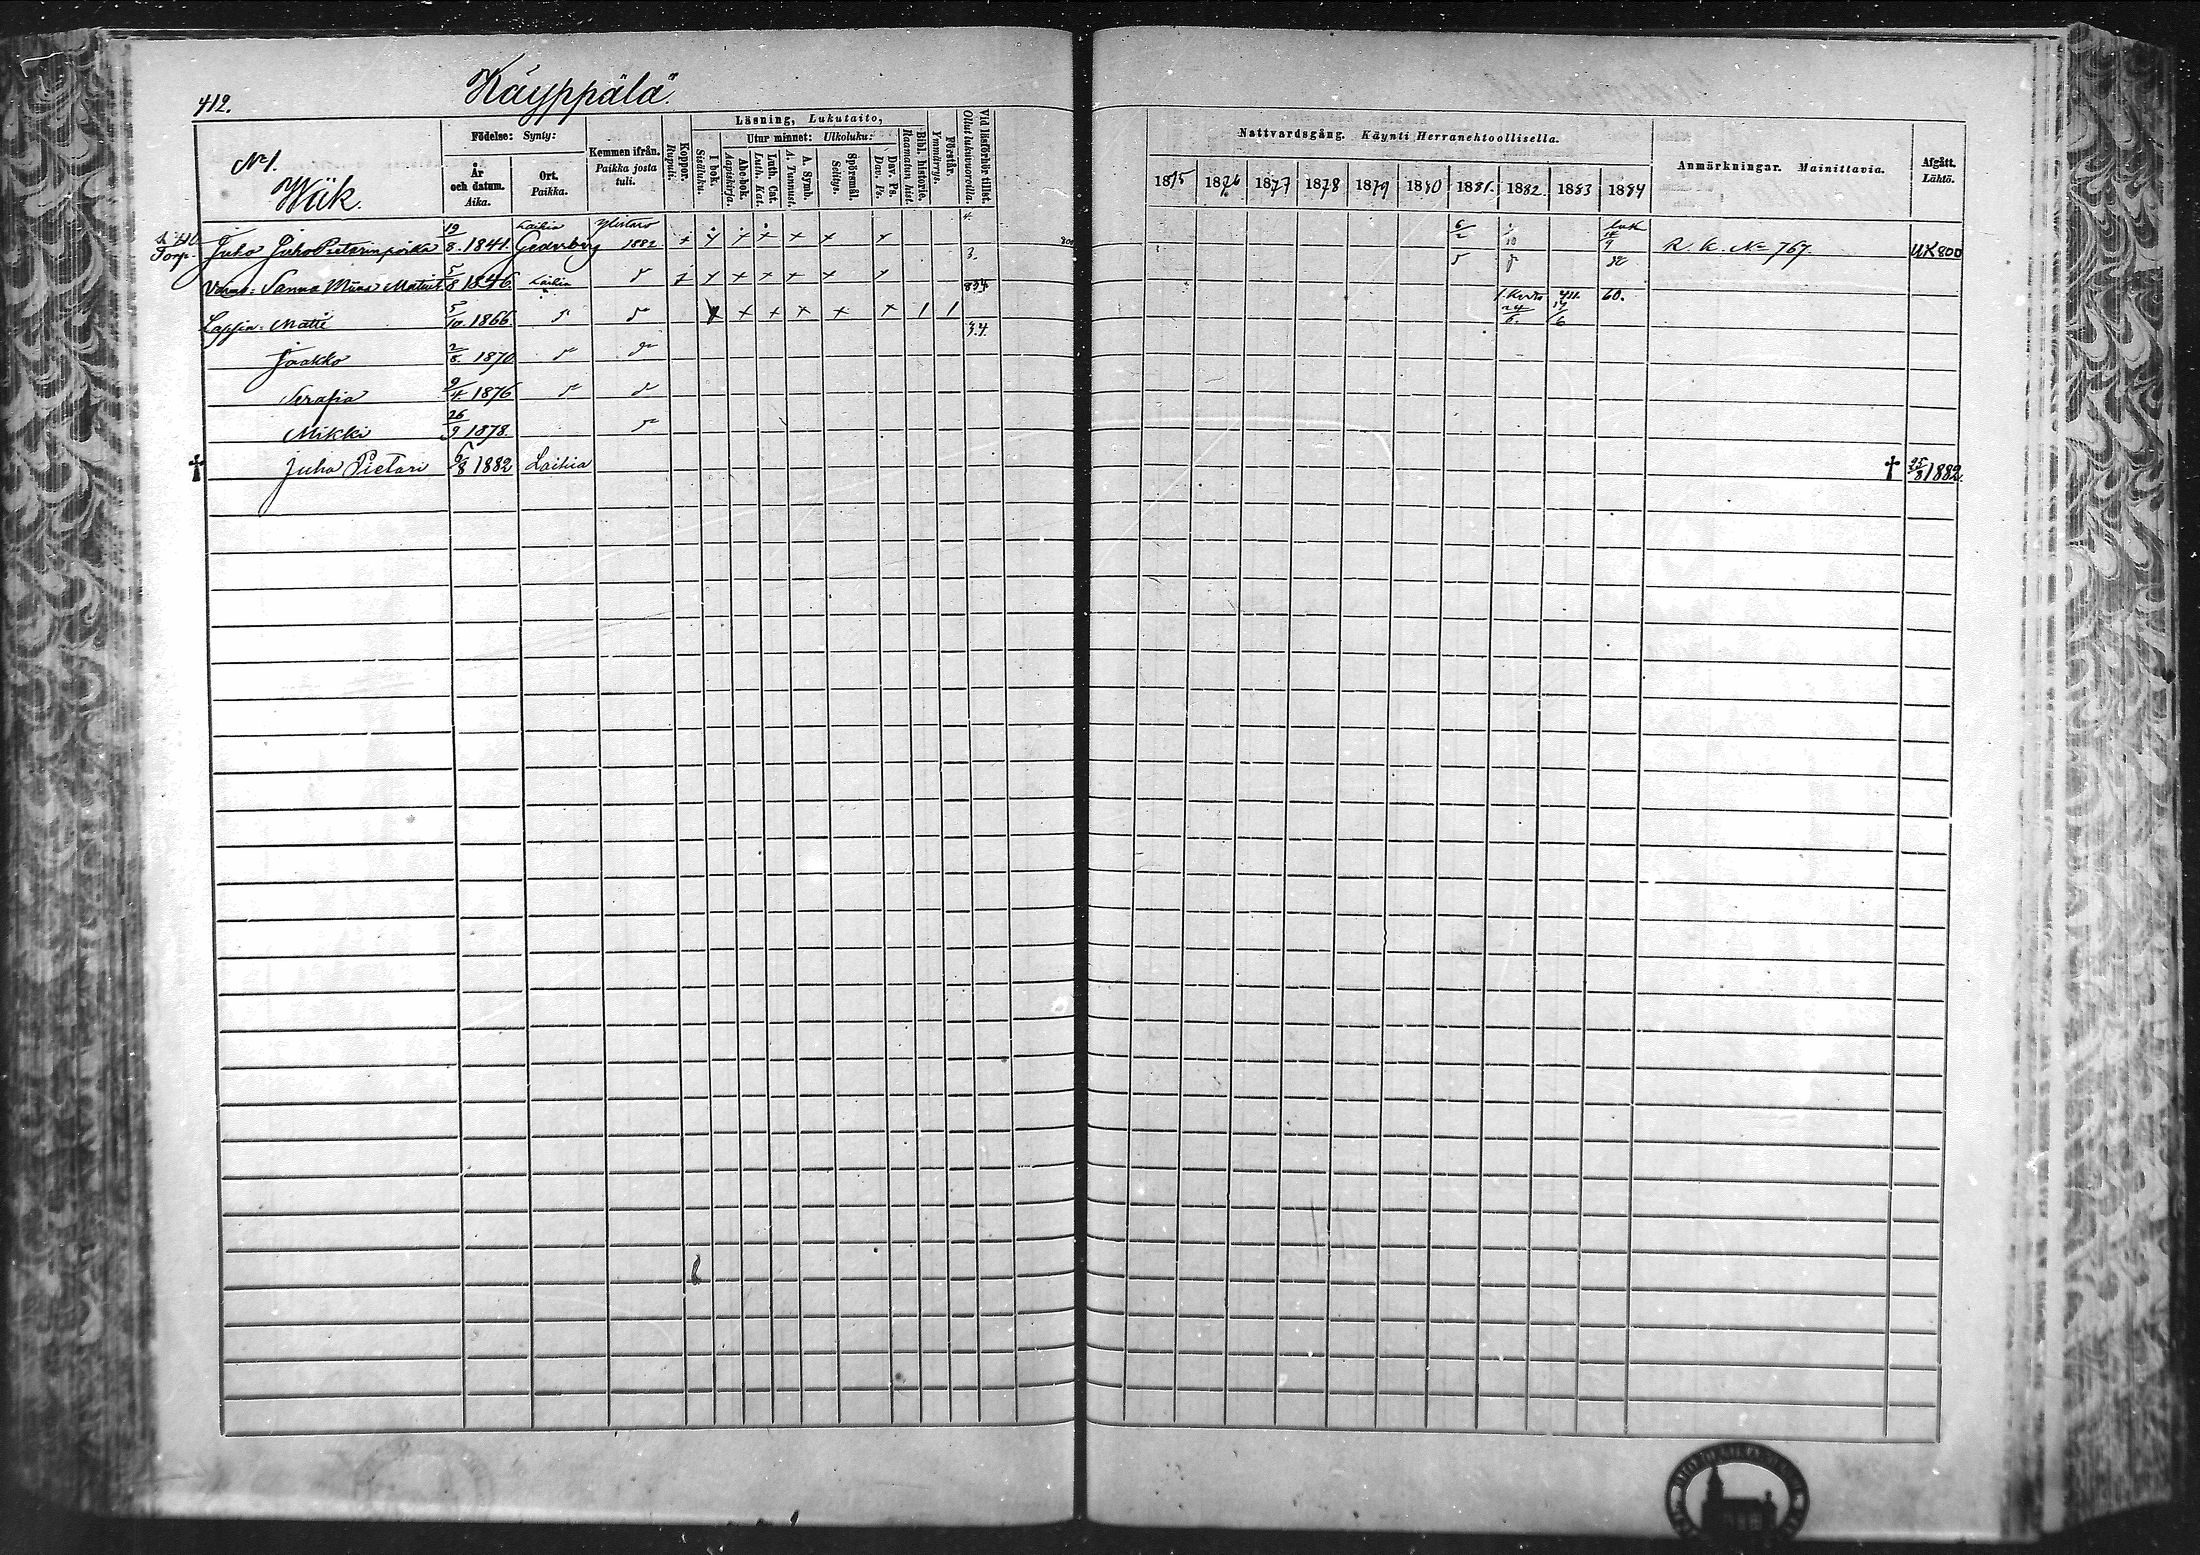 412.
Käyppälä.
No 1.
Wäk.
Födelse: Synty:
År och datum. Aika.
Ort. Paikka.
Kemmen ifrån. Paikka josta tuli.
Koppor. Rupuli.
Läsning, Lukutaito,
I bok. Sisäluku.
Utur minnet: Ulkoluku:
Abc-bok. Aapiskirja.
Luth. Cat. Luth. Kat.
A. Symb. A. Tunnust.
Spörsmål. Selitys.
Dav. Ps. Dav. Ps.
Bibl. historie. Raamatun hist.
Förstår. Ymmärrys.
Vid läsförhör tillst. Ollut lukuvuorolla.
Nattvardsgång. Käynti Herranehtoollisella.
1875 1876 1877 1878 1879 1880 1881. 1882. 1883 1884
Anmärkningar. Mainittavia.
Afgått. Lähtö.
Torp. Juho Juho Pietarinpoika 19/8. 1841. Laihia Ylistaro 1882 R. K. No 767. UK 800
Sanna Miina Matint. 5/8 1846. Laihia
Lapsia: Matti 5/10. 1866. 24/6. 60.
Jaakko 2/8. 1870
Serafia 9/4 1876
Mikki 26/9 1878.
† Juho Pietari 6/8 1882 Laihia † 25/8 1882.